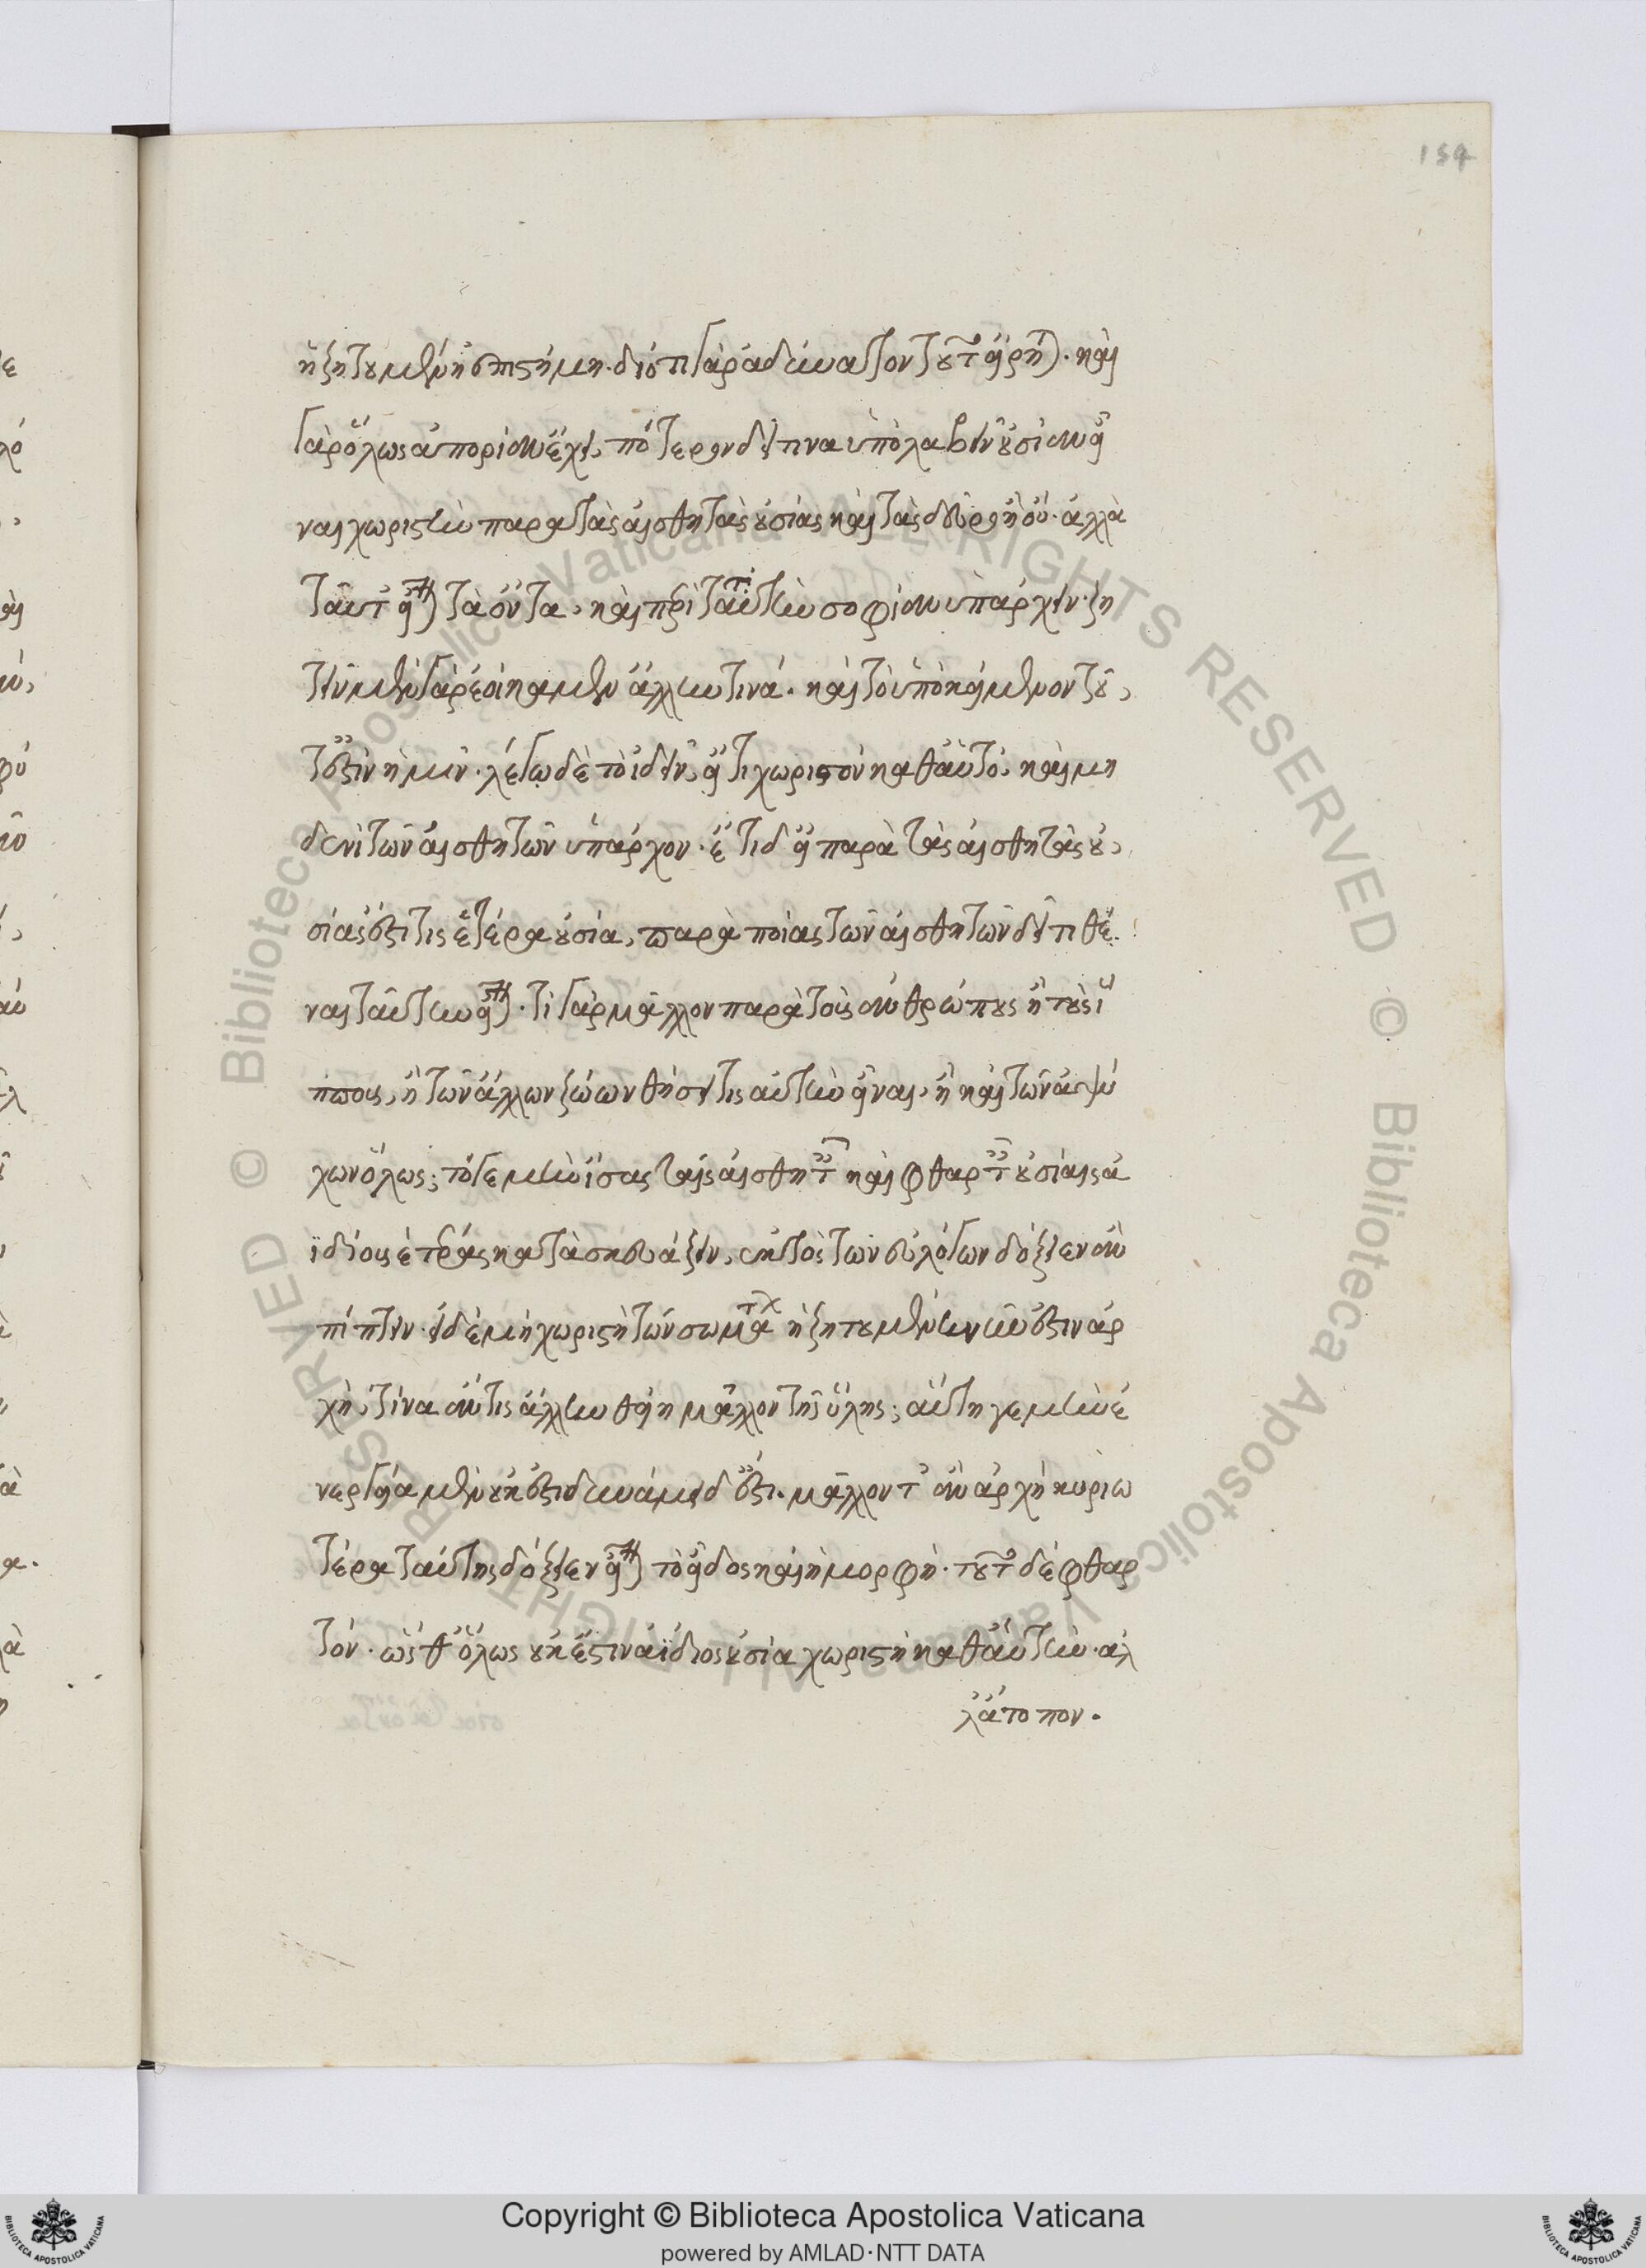 154
ἡ ζητουμένη ἐπιστήμη. διότι γὰρ ἀδύνατον τοῦτ εἴρηται. καὶ
γὰρ ὅλως ἀπορίαν ἔχει, πότερον δεῖ τινα ὑπολαβεῖν οὐσίαν εἶ
ναι χωριστὴν παρὰ τὰς αἰσθητὰς οὐσίας καὶ τὰς δεῦρο, ἢ οὔ. ἀλλὰ
ταῦτ εἶναι τὰ ὄντα, καὶ περὶ ταῦτα τὴν σοφίαν ὑπάρχειν. ζη
τεῖν μὲν γὰρ ἐοίκαμεν ἄλλην τινά. καὶ τὸ ὑποκείμενον τοῦ
τ ἐστὶν ἡμῖν. λέγω δὲ τὸ ἰδεῖν, εἴ τι χωριστὸν καθ αὑτό, καὶ μη
δενὶ τῶν αἰσθητῶν ὑπάρχον. ἔτι δ εἰ παρὰ τὰς αἰσθητὰς οὐ
σίας ἐστί τις ἑτέρα οὐσία, παρὰ ποίας τῶν αἰσθητῶν δεῖ τιθέ
ναι ταύτην εἶναι. τί γὰρ μᾶλλον παρὰ τοὺς ἀνθρώπους ἢ τοὺς ἵ
ππους, ἢ τῶν ἄλλων ζώων θήσει τις αὐτὴν εἶναι, ἢ καὶ τῶν ἀψύ
χων ὅλως; τό γε μὴν ἴσας ταῖς αἰσθηταῖς καὶ φθαρταῖς οὐσίαις ἀ
ϊδίους ἑτέρας κατασκευάζειν, ἐκτὸς τῶν εὐλόγων δόξειεν ἂν
πίπτειν. εἰ δὲ μὴ χωριστὴ τῶν σωμάτων ἡ ζητουμένη νῦν ἐστιν ἀρ
χή, τίνα ἄν τις ἄλλην θείη μᾶλλον τῆς ὕλης; αὕτη γε μὴν ἐ
νεργεία μὲν οὐκ ἔστι δυνάμει δ ἔστι. μᾶλλον τ ἂν ἀρχὴ κυριω
τέρα ταύτης δόξειεν εἶναι τὸ εἶδος καὶ ἡ μορφή. τοῦτο δὲ φθαρ
τόν. ὥσθ ὅλως οὐκ ἔστιν ἀΐδιος οὐσία χωριστὴ καθ αὑτήν. ἀλ
λ ἄτοπον.
Copyright © Biblioteca Apostolica Vaticana
powered by AMLAD·NTT DATA